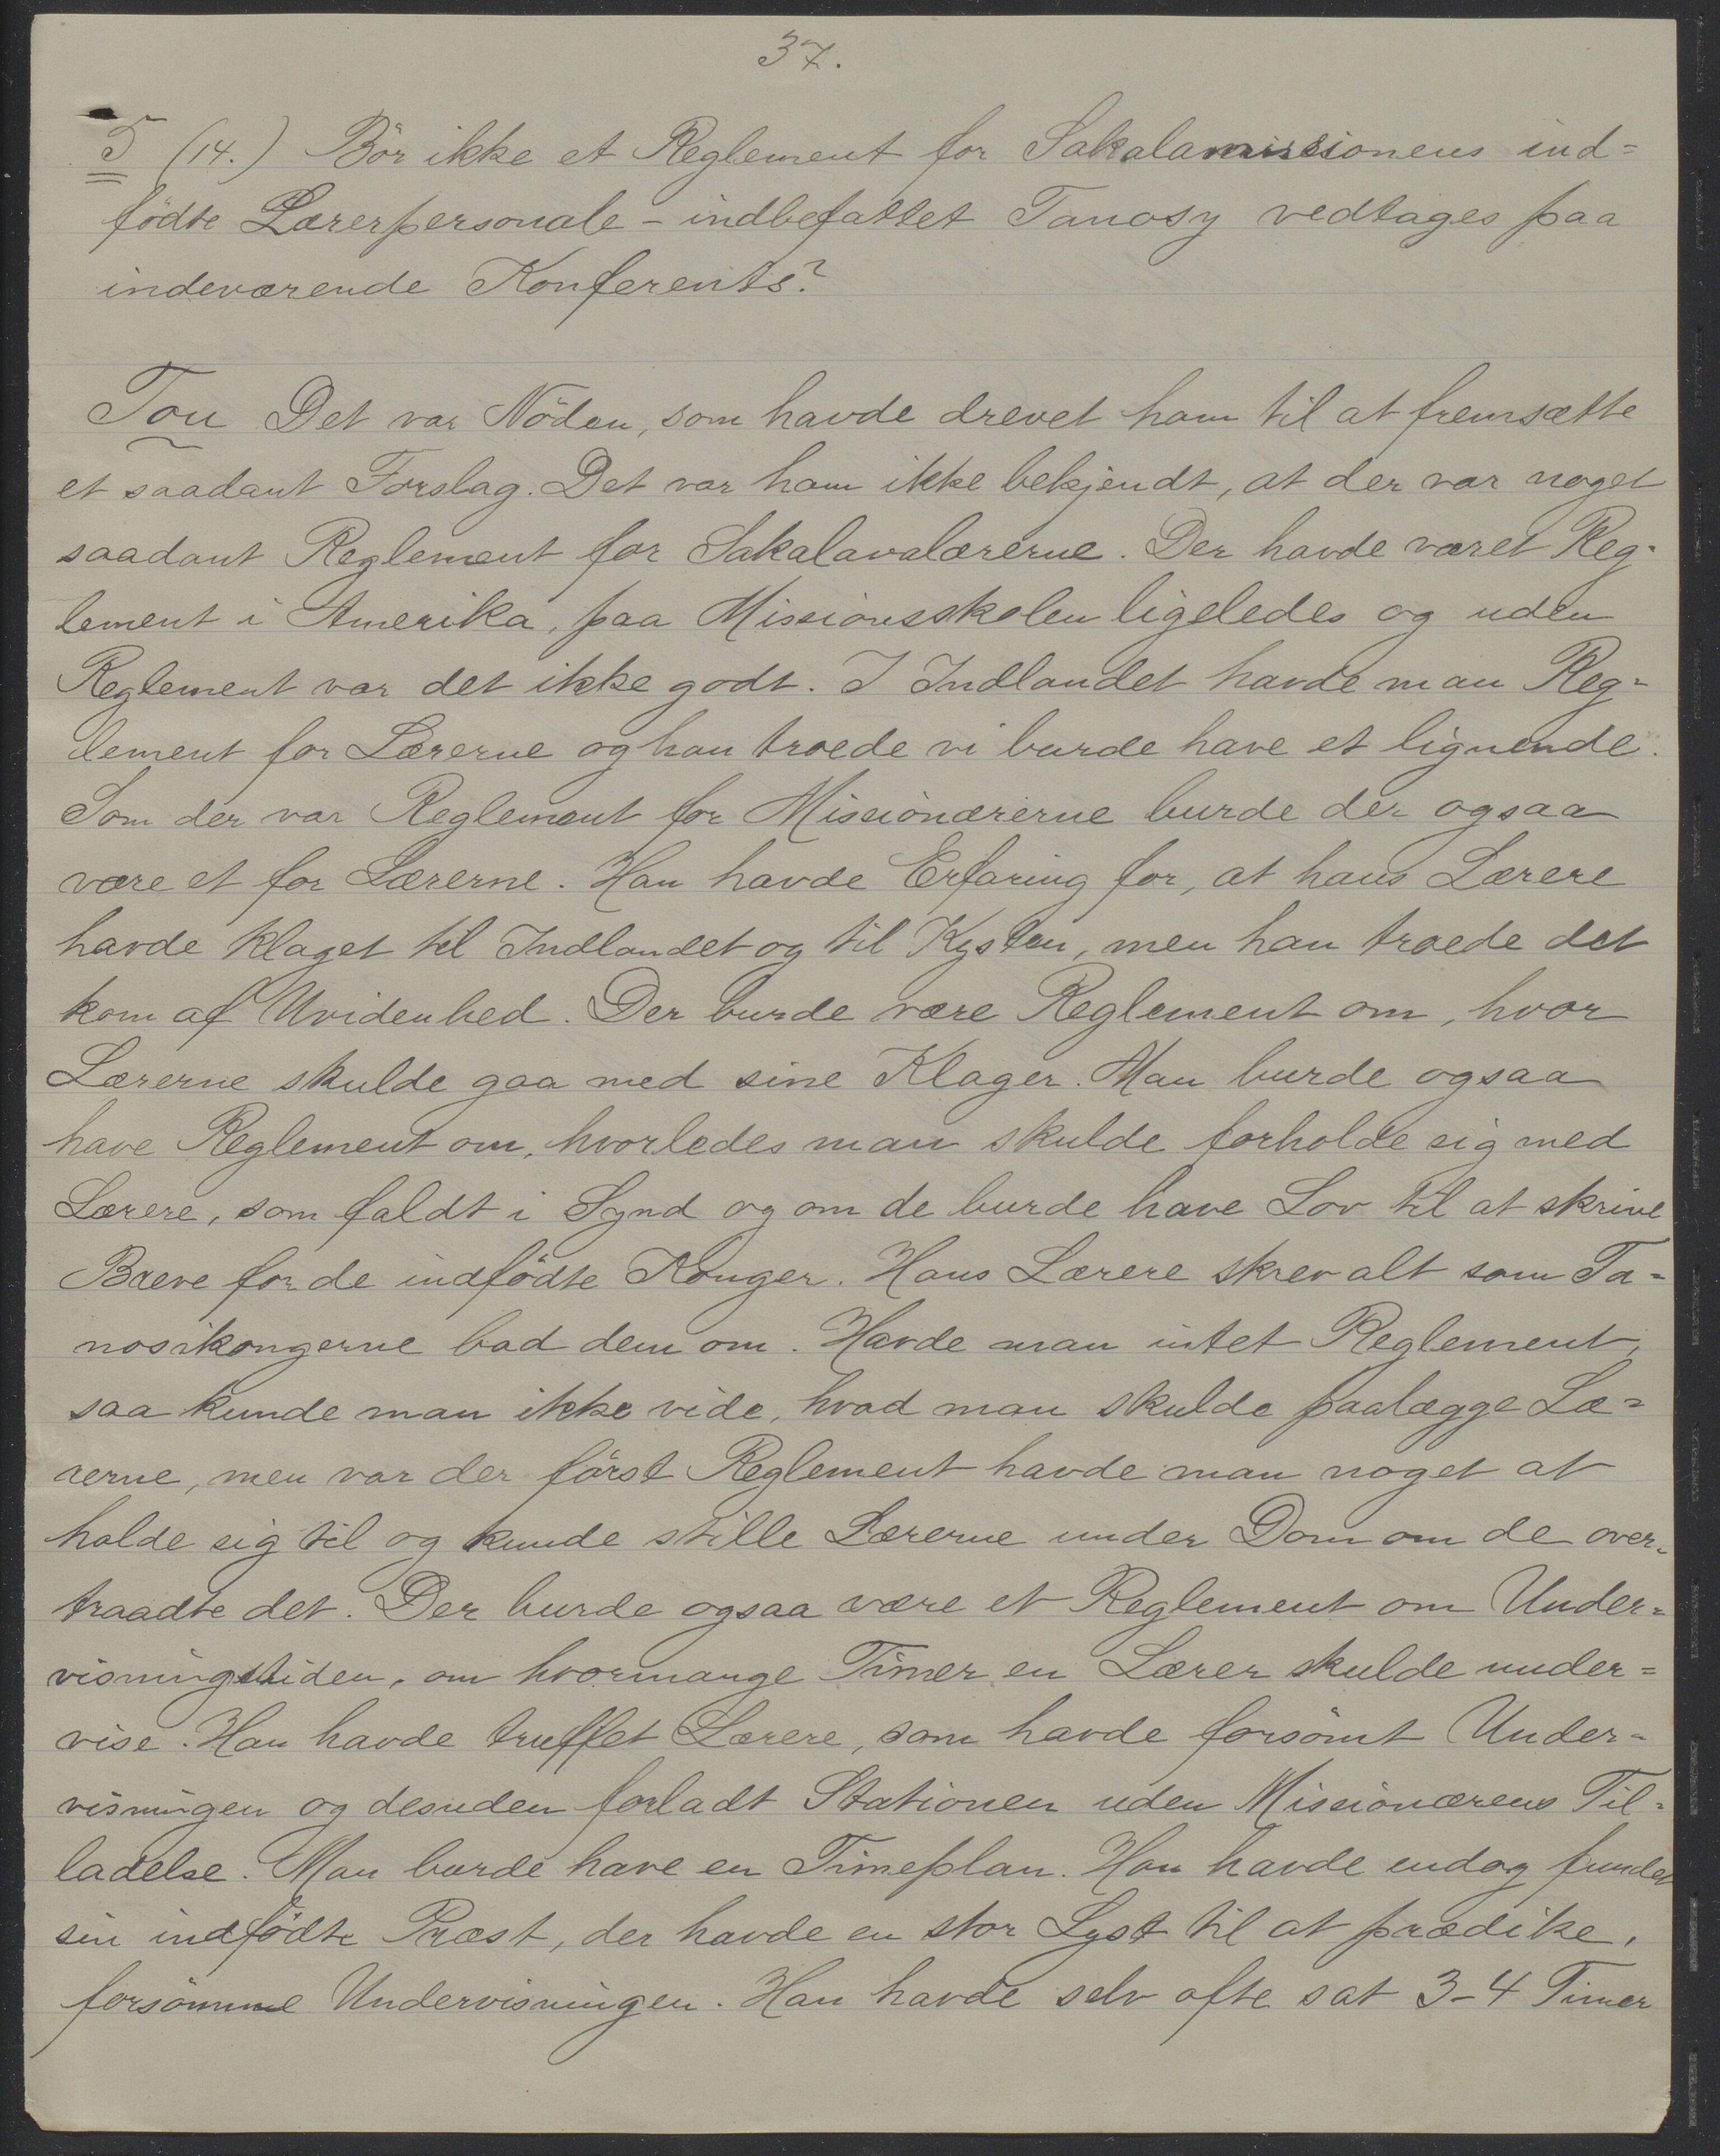 37.
5 (14.) Bör ikke et Reglement for Sakalamissionens ind=
födte Lærerpersonale - indbefattet Tanosy vedtages paa
indeværende Konferents?
Tou Det var Nöden, som havde drevet ham til at fremsætte
et saadant Forslag. Det var ham ikke bekjendt, at der var noget
saadant Reglement for Sakalavalærerne. Der havde været Reg-
lement i Amerika, paa Missionsskolen ligeledes og uden
Reglement var det ikke godt. I Indlandet havde man Reg=
lement for Lærerne og han troede vi burde have et lignende.
Som der var Reglement for Missionærerne burde der ogsaa
være et for Lærerne. Han havde Erfaring for, at hans Lærere
havde klaget til Indlandet og til Kysten, men han troede det
kom af Uvidenhed. Der burde være Reglement om, hvor
Lærerne skulde gaa med sine Klager. Man burde ogsaa
have Reglement om, hvorledes man skulde forholde sig med
Lærere, som faldt i Synd og om de burde have Lov til at skrive
Breve for de indfödte Konger. Hans Lærere skrev alt som Ta=
nosikongerne bad dem om. Havde man intet Reglement,
saa kunde man ikke vide, hvad man skulde paalægge Læ=
rerne, men var der först Reglement havde man noget at
holde sig til og kunde stille Lærerne under Dom om de over=
traadte det. Der burde ogsaa være et Reglement om Under=
visningstiden, om hvormange Timer en Lærer skulde under=
vise. Han havde truffet Lærere, som havde forsömt Under=
visningen og desuden forladt Stationen uden Missionærens Til=
ladelse. Man burde have en Timeplan. Han havde endog fundet
sin indfödte Præst, der havde en stor Lyst til at prædike,
forsömme Undervisningen. Han havde selv ofte sat 3-4 Timer